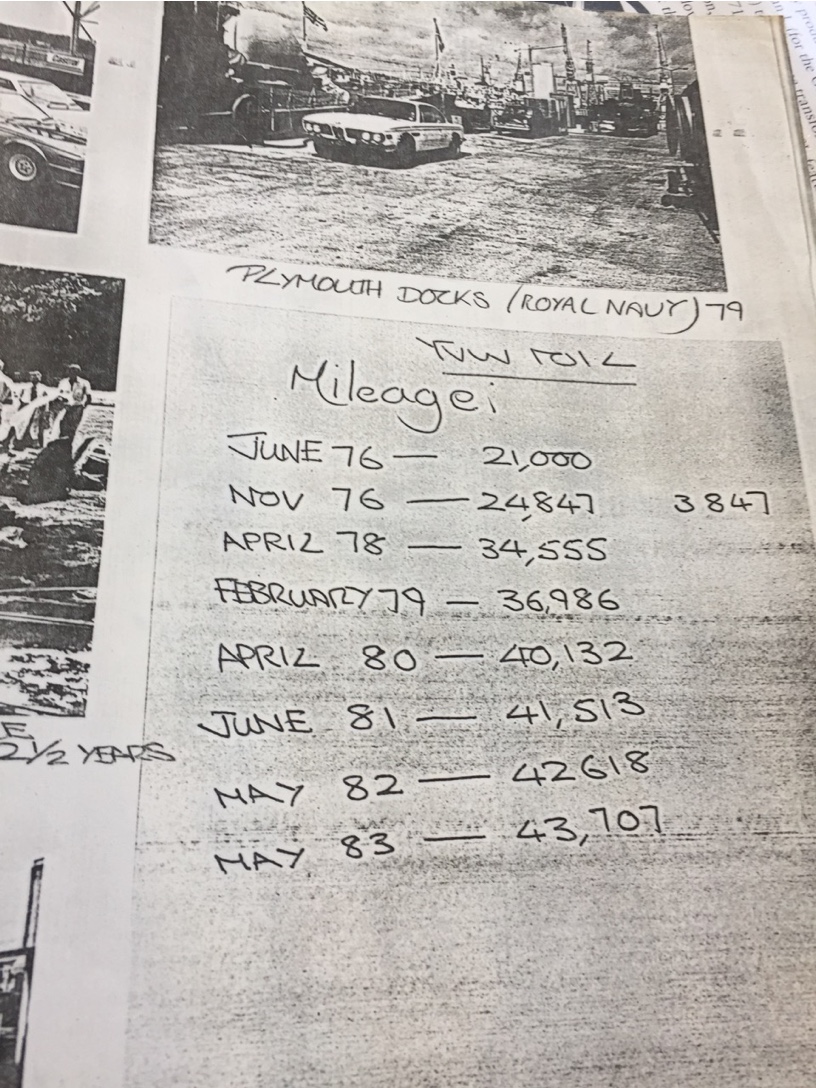 PLYMOUTH DOCKS (ROYAL NAVY) 79
Mileage:
JUNE 76 — 21,000
NOV 76 — 24,847 3847
APRIL 78 — 34,555
FEBRUARY 79 — 36,986
APRIL 80 — 40,132
JUNE 81 — 41,513
MAY 82 — 42618
MAY 83 — 43,707
2 1/2 YEARS